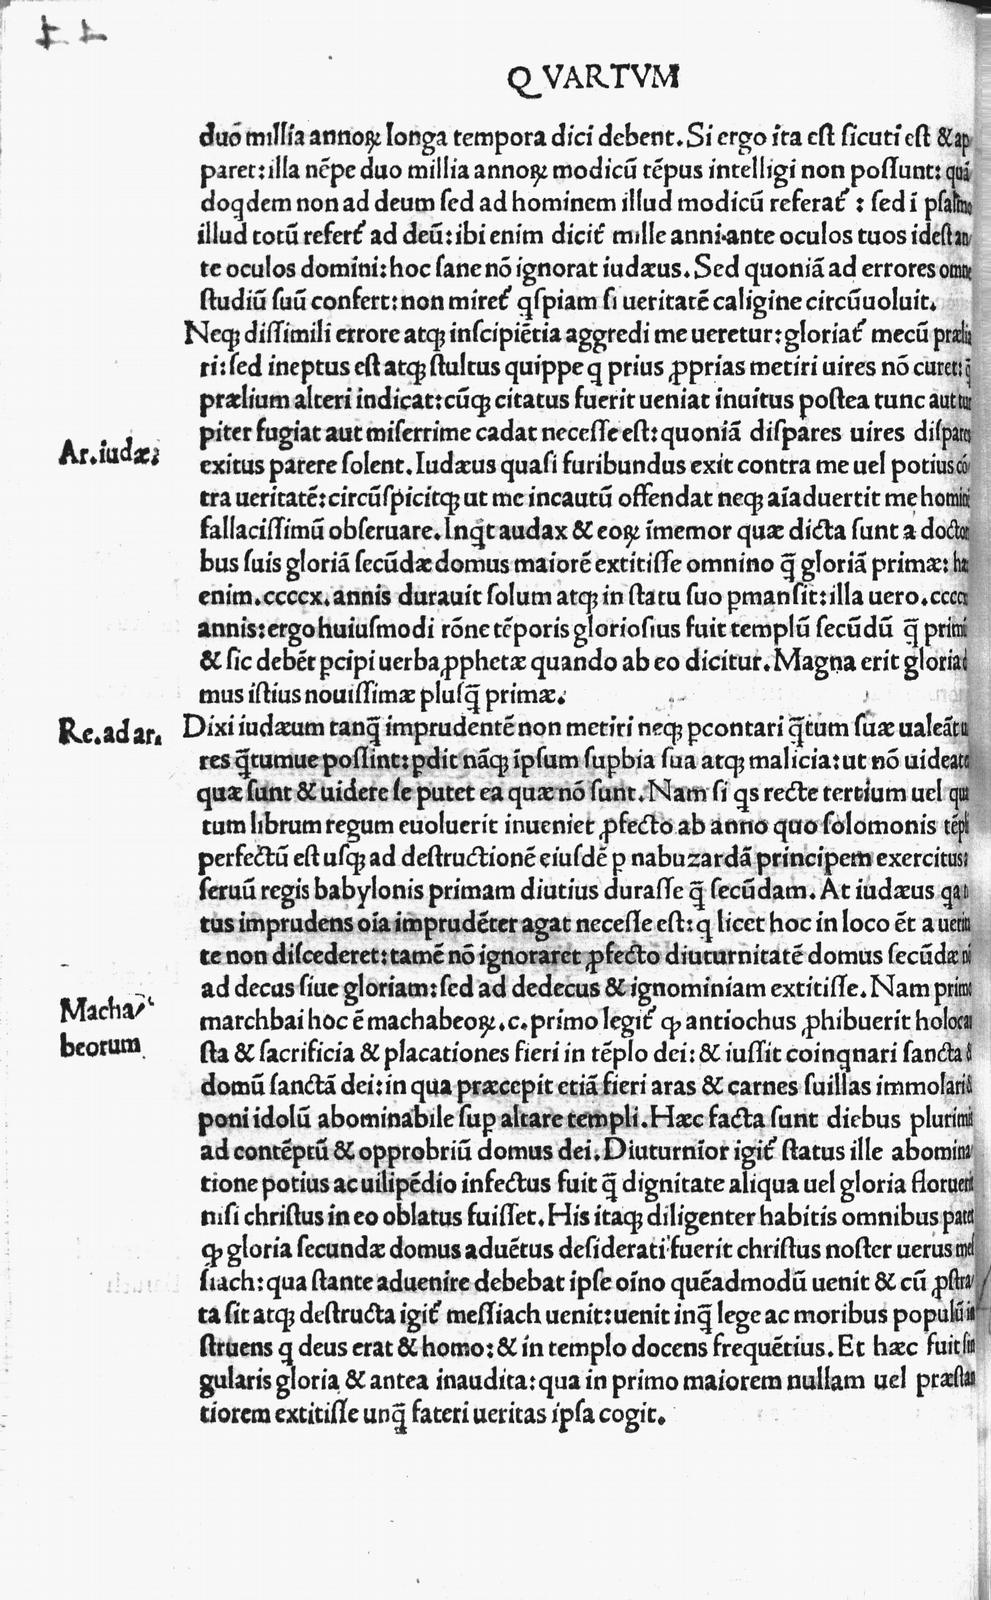 QVARTVM
duo millia annoꝝ longa tempora dici debent. Si ergo ita est sicuti est & ap
paret: illa nēpe duo millia annoꝝ modicū tēpus intelligi non possunt: quā
doqdem non ad deum sed ad hominem illud modicū referat᷑ : sed ī psalmo
illud totū refert᷑ ad deū: ibi enim dicit᷑ mille anni.ante oculos tuos idest an
te oculos domini: hoc sane nō ignorat iudæus. Sed quoniā ad errores omne
studiū suū confert: non miret᷑ qspiam si ueritatē caligine circūuoluit.
Neqꝫ dissimili errore atqꝫ inscipiētia aggredi me ueretur: gloriat᷑ mecū præli
ri: sed ineptus est atqꝫ stultus quippe q prius ꝓprias metiri uires nō curet: q̄
prælium alteri indicat: cūqꝫ citatus fuerit ueniat inuitus postea tunc aut tur
piter fugiat aut miserrime cadat necesse est: quoniā dispares uires dispares
Ar. iudæ:
exitus parere solent. Iudæus quasi furibundus exit contra me uel potius cō
tra ueritatē: circūspicitqꝫ ut me incautū offendat neqꝫ aīaduertit me homini
fallacissimū obseruare. Inq̇t audax & eoꝝ īmemor quæ dicta sunt a doctori
bus suis gloriā secūdæ domus maiorē extitisse omnino q̄ gloriā primæ: hæc
enim .ccccx. annis durauit solum atqꝫ in statu suo ꝑmansit: illa uero .cccc
annis: ergo huiusmodi rōne tēporis gloriosius fuit templū secūdū q̄ primū
& sic debēt ꝑcipi uerba ꝓphetæ quando ab eo dicitur. Magna erit gloria d
mus istius nouissimæ plusq̄ primæ.
Re. ad ar.
Dixi iudæum tanq̄ imprudentē non metiri neqꝫ ꝑcontari q̄tum suæ ualeāt ui
res q̄tumue possint: ꝑdit nāqꝫ ipsum suꝑbia sua atqꝫ malicia: ut nō uideat
quæ sunt & uidere se putet ea quæ nō sunt. Nam si qs recte tertium uel qua
tum librum regum euoluerit inueniet ꝓfecto ab anno quo solomonis tēpli
perfectū est usqꝫ ad destructionē eiusdē ꝑ nabuzardā principem exercitus:
seruū regis babylonis primam diutius durasse q̄ secūdam. At iudæus
tus imprudens oīa imprudēter agat necesse est: q licet hoc in loco ēt a uerita
te non discederet: tamē nō ignoraret ꝓfecto diuturnitatē domus secūdæ nō
ad decus siue gloriam: sed ad dedecus & ignominiam extitisse. Nam primo
Macha
beorum
marchbai hoc ē machabeoꝝ .c. primo legit᷑ ꝙ antiochus ꝓhibuerit holocau
sta & sacrificia & placationes fieri in tēplo dei: & iussit coinqnari sancta &
domū sanctā dei: in qua præcepit etiā fieri aras & carnes suillas immolari &
poni idolū abominabile suꝑ altare templi. Hæc facta sunt diebus plurimis
ad contēptū & opprobriū domus dei. Diuturnīor igit᷑ status ille abomina
tione potius ac uilipēdio infectus fuit q̄ dignitate aliqua uel gloria floruerit
nisi christus in eo oblatus fuisset. His itaqꝫ diligenter habitis omnibus patet
ꝙ gloria secundæ domus aduētus desiderati fuerit christus noster uerus mes
siach: qua stante aduenire debebat ipse oīno quēadmodū uenit & cū ꝓstra
ta sit atqꝫ destructa igit᷑ messiach uenit: uenit inq̄ lege ac moribus populū in
struens q deus erat & homo: & in templo docens frequētius. Et hæc fuit sin
gularis gloria & antea inaudita: qua in primo maiorem nullam uel præstan
tiorem extitisse unq̄ fateri ueritas ipsa cogit.